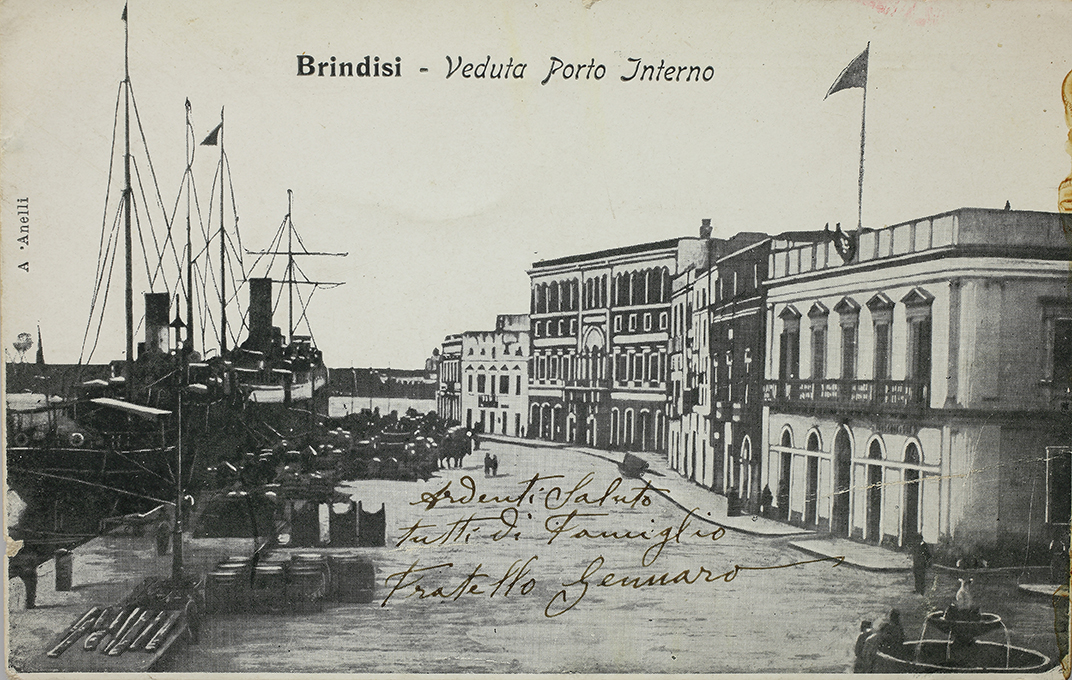 Brindisi - Veduta Porto Interno
A. Anelli
Ardenti Saluto
tutti di Famiglio
Fratello Gennaro